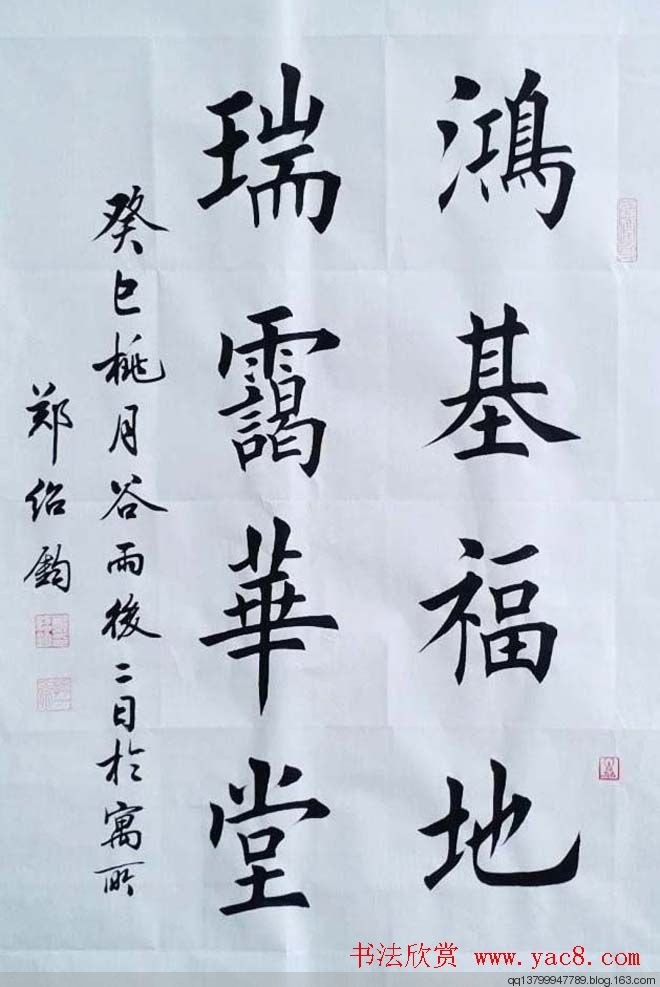 鴻基福地
瑞靄華堂
癸巳桃月谷雨後二日於寓所
郑绍钧
书法欣赏 www.yac8.com
qq13799947789.blog.163.com